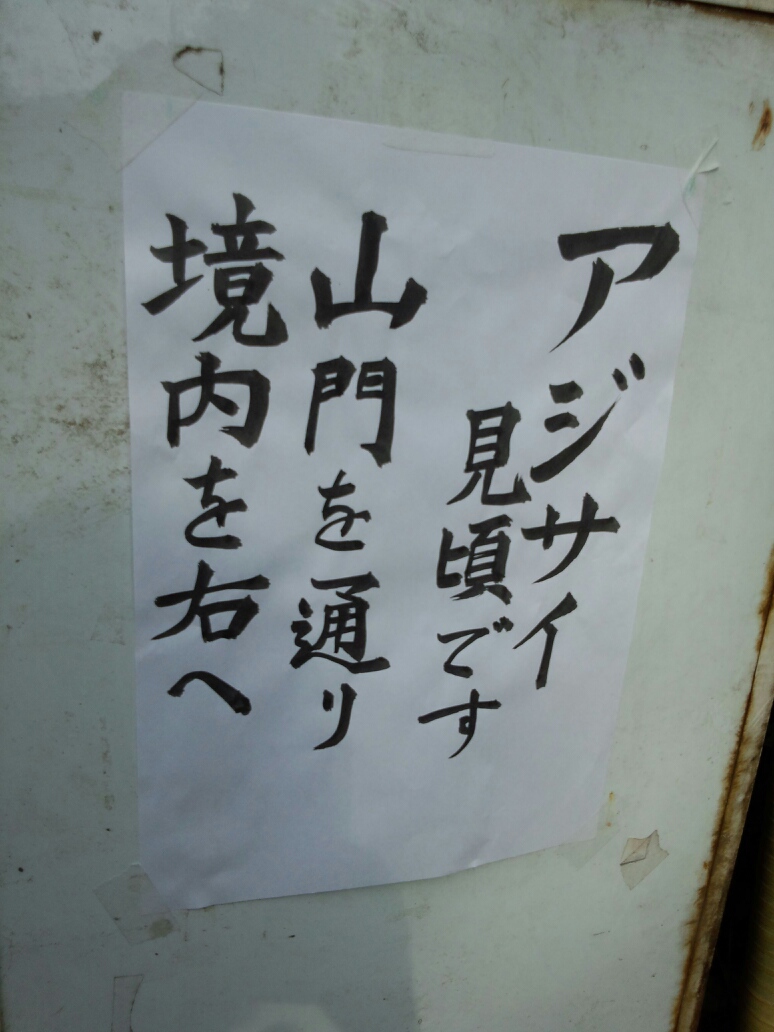 アジサイ
見頃です
山門を通り
境内を右へ